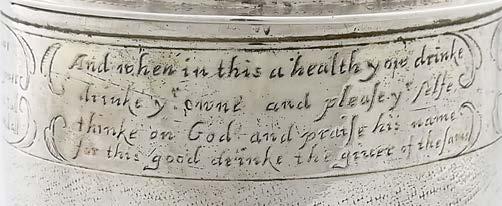 And when in this a health yow drinke
drinke yr owne and pleaſe yr ſelfe
thinke on God and praiſe his name
for this good drinke the giuer of the ſame